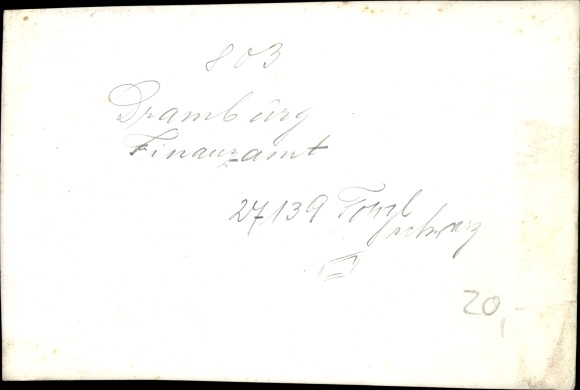 803
Dramburg
Finanzamt
27,139
schwarz
20,-